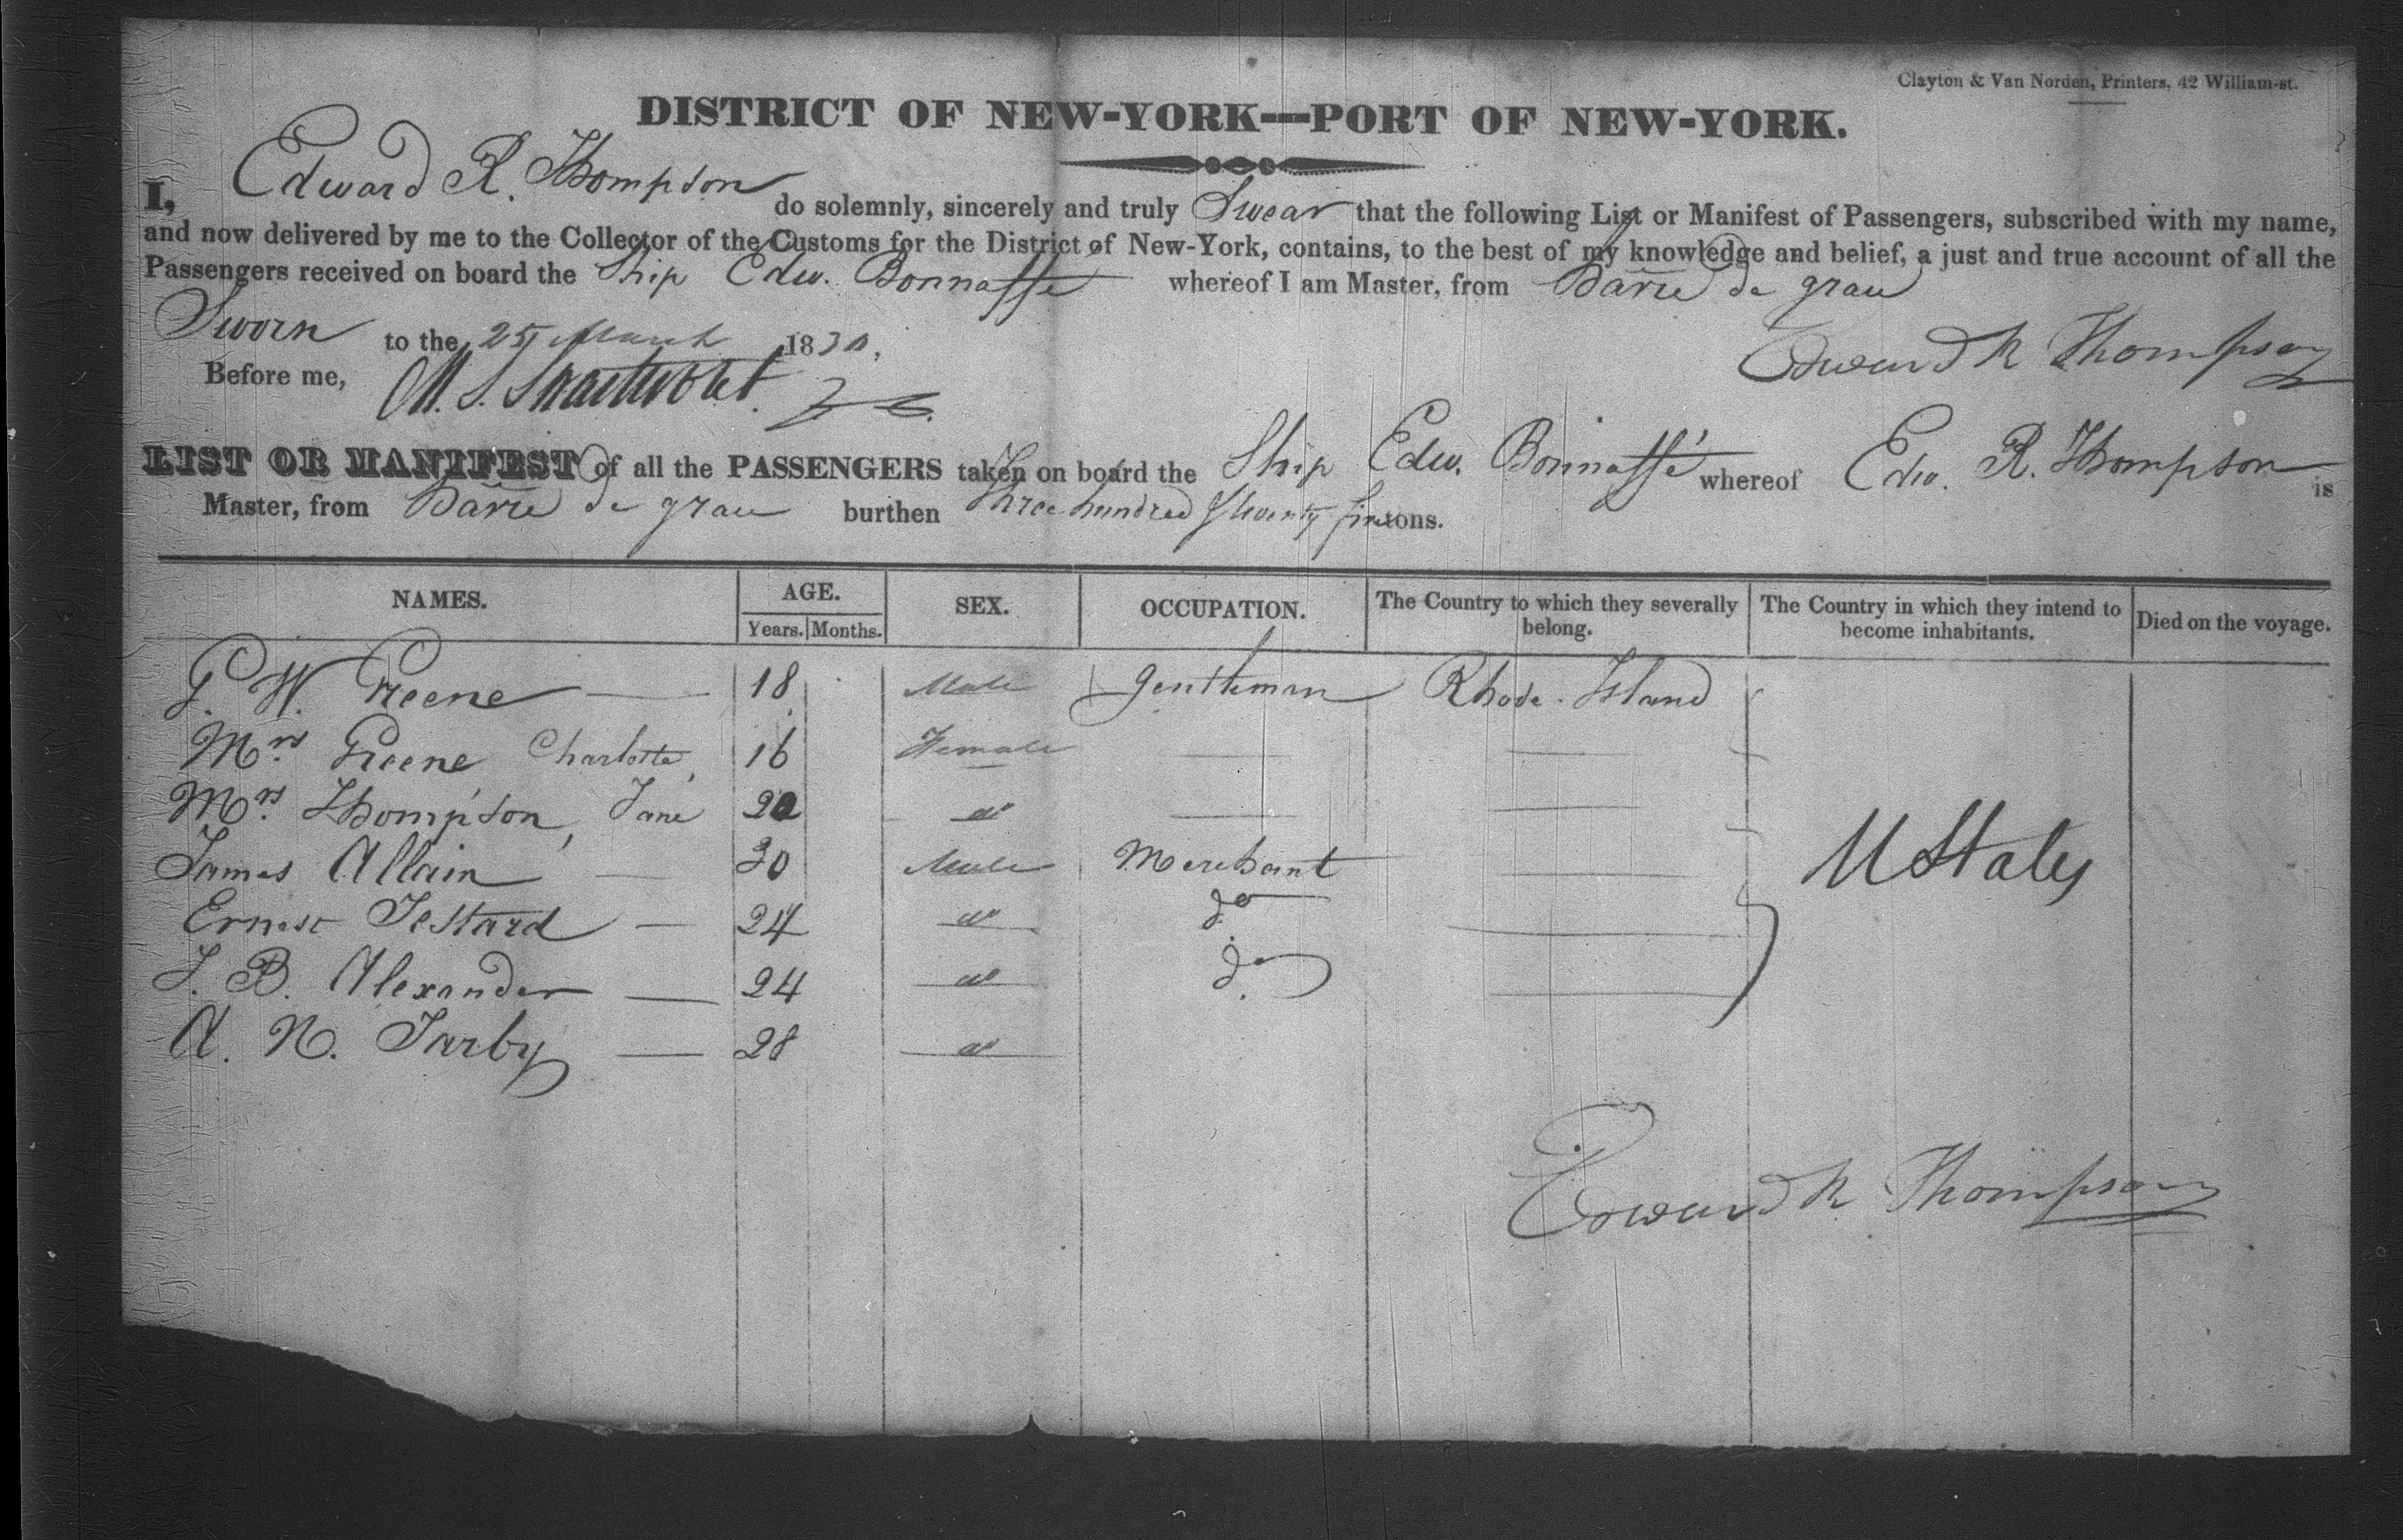 Clayton & Van Norden, Printers, 42 William-st.
DISTRICT OF NEW-YORK—PORT OF NEW-YORK.
I, Edward R. Thompson do solemnly, sincerely and truly Swear that the following List or Manifest of Passengers, subscribed with my name,
and now delivered by me to the Collector of the Customs for the District of New-York, contains, to the best of my knowledge and belief, a just and true account of all the
Passengers received on board the Ship Edw. Bonnaffe whereof I am Master, from Havre de grau
Sworn to the 25 March 1830,
Edward R Thompson
Before me, M. S. Swartwout
LIST OR MANIFEST of all the PASSENGERS taken on board the Ship Edw. Bonnaffé whereof Edw. R. Thompson is
Master, from Havre de grau burthen Three hundred & twenty five tons.
NAMES. AGE. SEX. OCCUPATION. The Country to which they severally belong. The Country in which they intend to become inhabitants. Died on the voyage.
Years. Months.
G. W. Greene — 18 Male gentleman Rhode Island
Mrs. Greene Charlotte, 16 Female — —
Mrs. Thompson, Jane do — —
James Allain — 30 Male Merchant —
Ernest Testard — 24 do do —
J. B. Alexander — 24 do do —
A. N. Tarby — 28 do
U States
Edward R Thompson